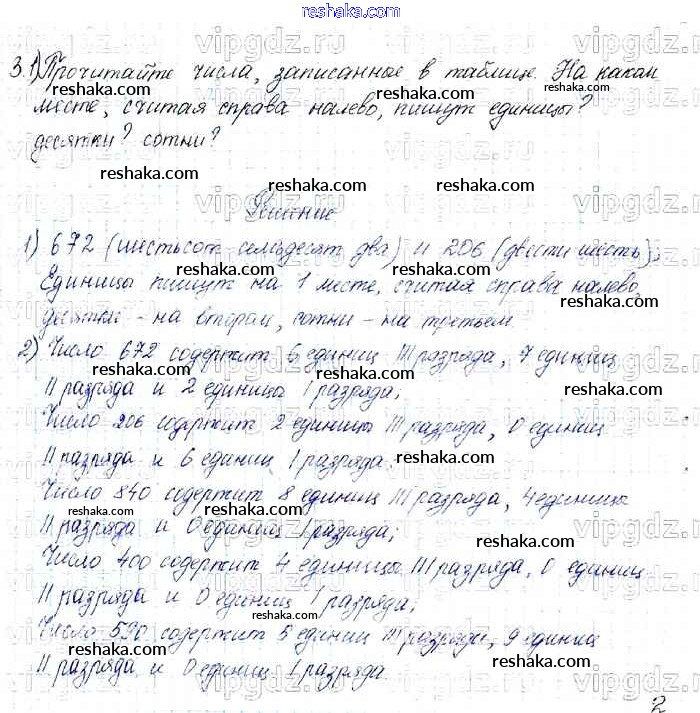 reshaka.com
3.1) Прочитайте числа, записанное в таблице. На каком
месте, считая справа налево, пишут единицы?
десятки? сотни?
Решение
1) 672 (шестьсот семьдесят два) и 206 (двести шесть).
Единицы пишут на 1 месте, считая справа налево,
десятки - на втором, сотни - на третьем.
2) Число 672 содержит 6 единиц III разряда, 7 единиц
II разряда и 2 единицы I разряда;
Число 206 содержит 2 единицы III разряда, 0 единиц
II разряда и 6 единиц I разряда.
Число 840 содержит 8 единиц III разряда, 4 единицы
II разряда и 0 единиц I разряда;
Число 400 содержит 4 единицы III разряда, 0 единиц
II разряда и 0 единиц I разряда;
Число 590 содержит 5 единиц III разряда, 9 единиц
II разряда и 0 единиц I разряда.
2